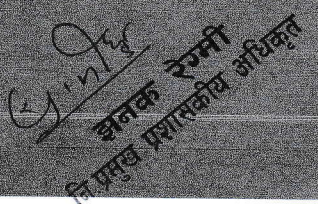 झनक रेग्मी
नि.प्रमुख प्रशासकीय अधिकृत